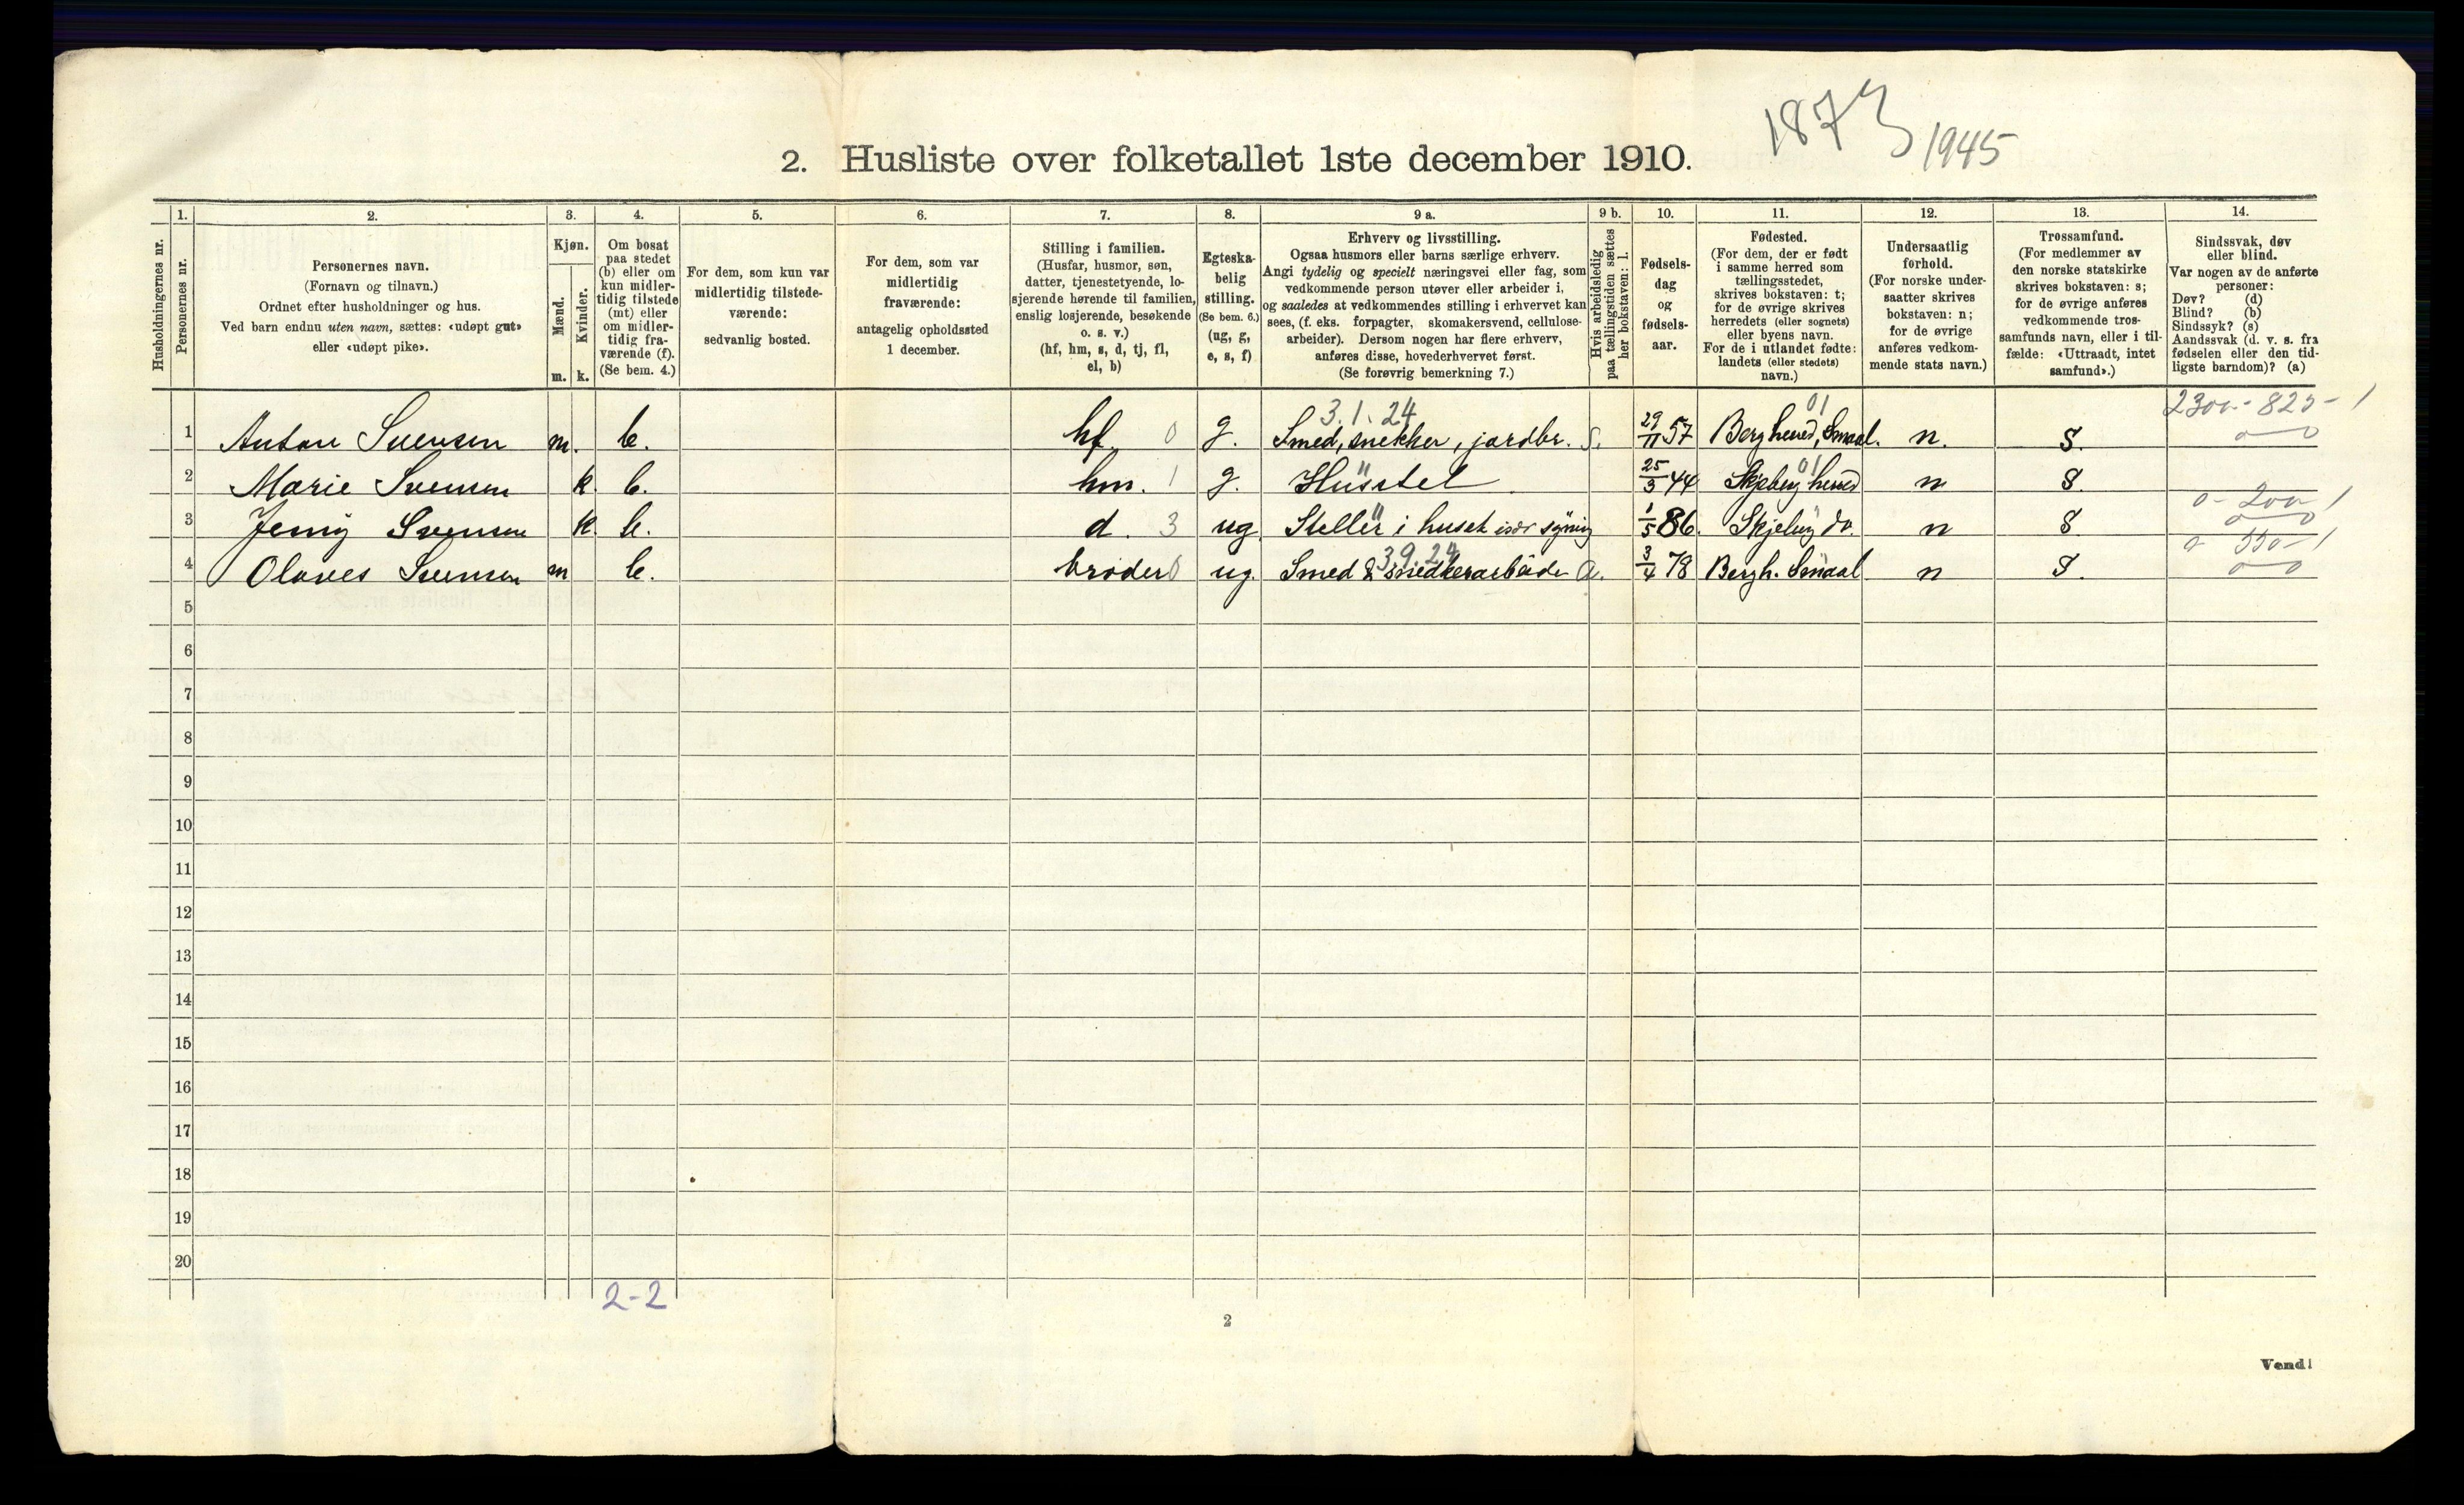 1873 1945
2. Husliste over folketallet 1ste december 1910.
1. 2. 3. 4. 5. 6. 7. 8. 9 a. 9 b. 10. 11. 12. 13. 14.
Husholdningernes nr.
Personernes nr.
Personernes navn.
(Fornavn og tilnavn.)
Ordnet efter husholdninger og hus.
Ved barn endnu uten navn, sættes: «udøpt gut»
eller «udøpt pike».
Kjøn.
Mænd.
Kvinder.
m. k.
Om bosat
paa stedet
(b) eller om
kun midler-
tidig tilstede
(mt) eller
om midler-
tidig fra-
værende (f).
(Se bem. 4.)
For dem, som kun var
midlertidig tilstede-
værende:
sedvanlig bosted.
For dem, som var
midlertidig
fraværende:
antagelig opholdssted
1 december.
Stilling i familien.
(Husfar, husmor, søn,
datter, tjenestetyende, lo-
sjerende hørende til familien,
enslig losjerende, besøkende
o. s. v.)
(hf, hm, s, d, tj, fl,
el, b)
Egteska-
belig
stilling.
(Se bem. 6.)
(ug, g,
e, s, f)
Erhverv og livsstilling.
Ogsaa husmors eller barns særlige erhverv.
Angi tydelig og specielt næringsvei eller fag, som
vedkommende person utøver eller arbeider i,
og saaledes at vedkommendes stilling i erhvervet kan
sees, (f. eks. forpagter, skomakersvend, cellulose-
arbeider). Dersom nogen har flere erhverv,
anføres disse, hovederhvervet først.
(Se forøvrig bemerkning 7.)
Hvis arbeidsledig
paa tællingstiden sættes
her bokstaven: l.
Fødsels-
dag
og
fødsels-
aar.
Fødested.
(For dem, der er født
i samme herred som
tællingsstedet,
skrives bokstaven: t;
for de øvrige skrives
herredets (eller sognets)
eller byens navn.
For de i utlandet fødte:
landets (eller stedets)
navn.)
Undersaatlig
forhold.
(For norske under-
saatter skrives
bokstaven: n;
for de øvrige
anføres vedkom-
mende stats navn.)
Trossamfund.
(For medlemmer av
den norske statskirke
skrives bokstaven: s;
for de øvrige anføres
vedkommende tros-
samfunds navn, eller i til-
fælde: «Uttraadt, intet
samfund».)
Sindssvak, døv
eller blind.
Var nogen av de anførte
personer:
Døv? (d)
Blind? (b)
Sindssyk? (s)
Aandssvak (d. v. s. fra
fødselen eller den tid-
ligste barndom)? (a)
3. 1. 24 01 2300 - 825 - 1
1 Anton Svensen m. b. hf. 0 g. Smed, snekker, jordbr. S. 29/11 57 Berg herred, Smaal. n. S. 0 0
01
2 Marie Svensen k. b. hm. 1 g. Husstel 25/3 44 Skjeberg herred n S.
0 - 200 - 1
3 Jenny Svensen k. b. d. 3 ug Steller i huset især syning 1/5 86. Skjeberg do. n S 0 0
3 9. 24 0 550 - 1
4 Olaves Svensen m b. broder 0 ug. Smed & snedkerarbeide a. 3/4 78 Berg h. Smaal n S. 0 0
5
6
7
8
9
10
11
12
13
14
15
16
17
18
19
20
2-2
2
Vend!